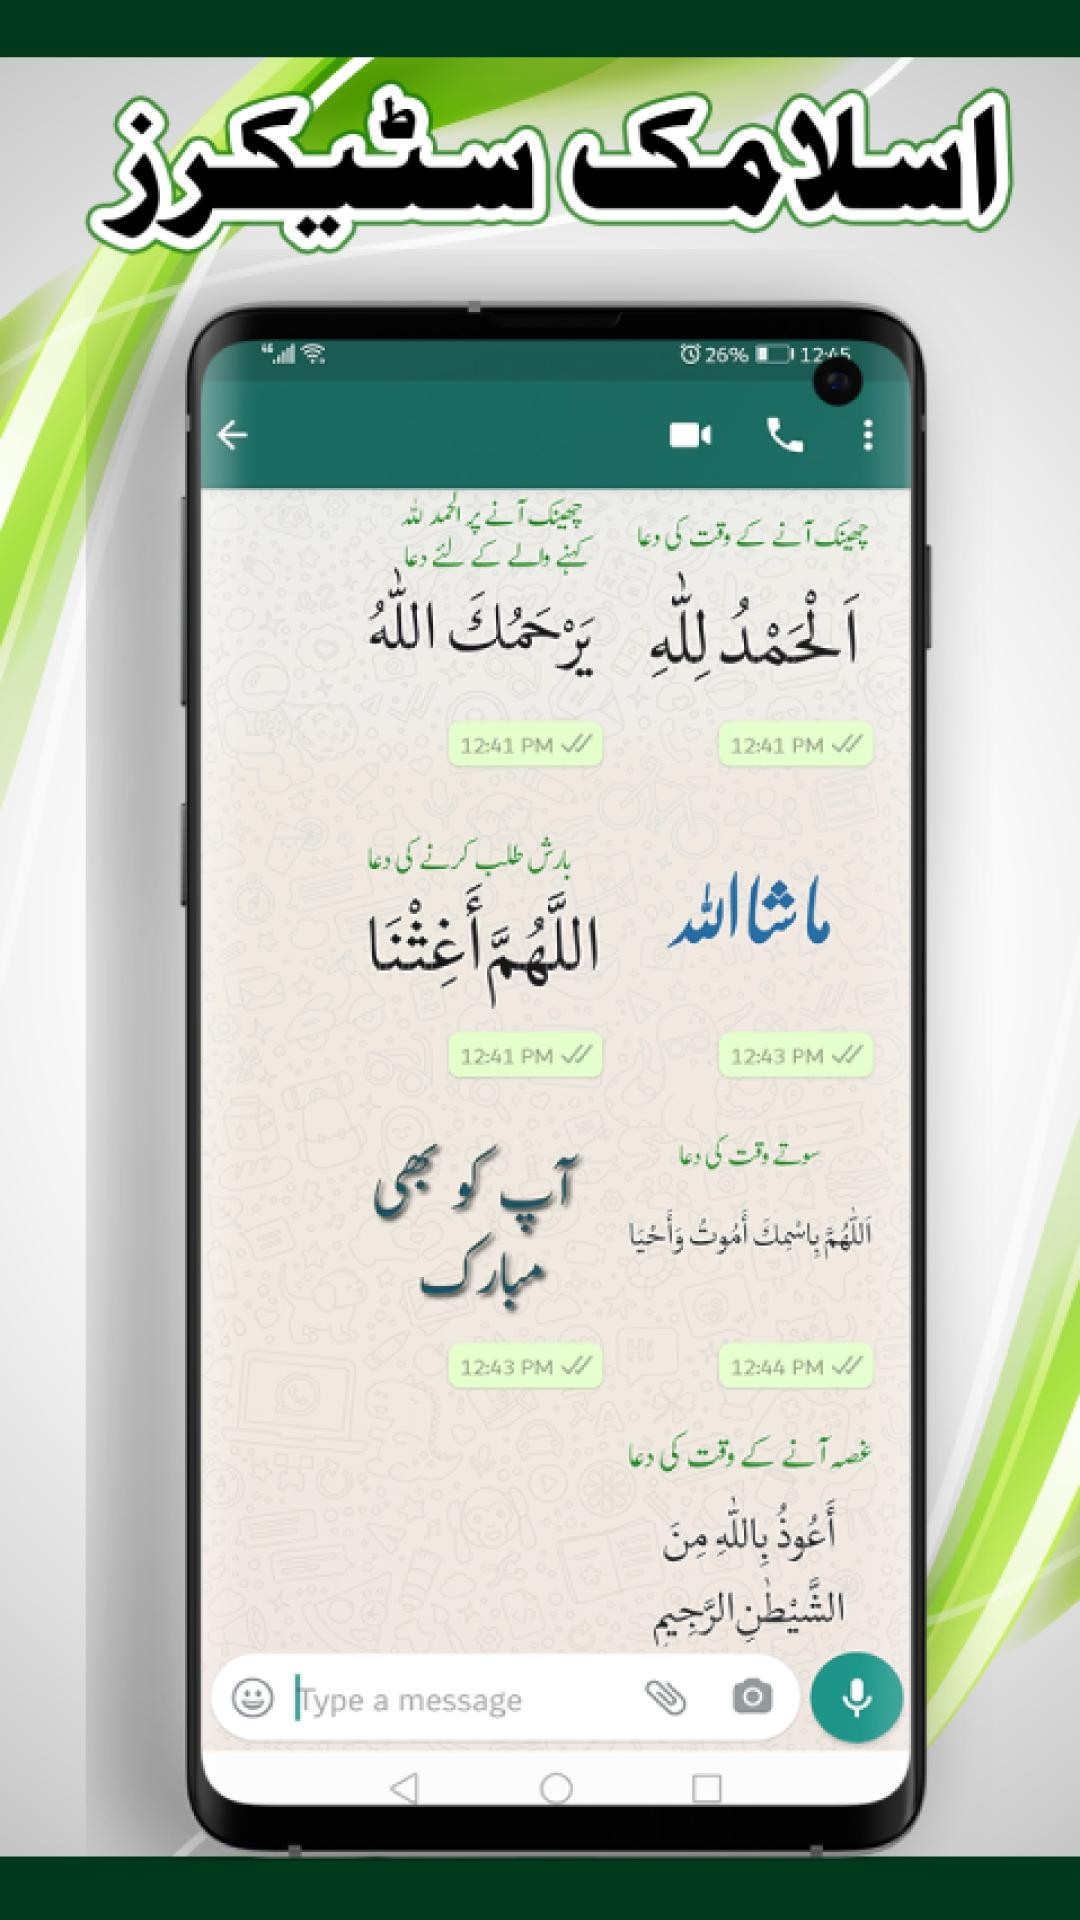 اسلامک سٹیکرز
26% 12:45
چھینک آنے کے وقت کی دعا
اَلْحَمْدُ لِلّٰهِ
12:41 PM
چھینک آنے پر الحمد للہ
کہنے والے کے لئے دعا
يَرْحَمُكَ اللّٰهُ
12:41 PM
ماشااللہ
12:43 PM
بارش طلب کرنے کی دعا
اللَّهُمَّ أَغِثْنَا
12:41 PM
سوتے وقت کی دعا
اَللّٰهُمَّ بِاسْمِكَ أَمُوتُ وَأَحْيَا
12:44 PM
آپ کو بھی
مبارک
12:43 PM
غصہ آنے کے وقت کی دعا
أَعُوذُ بِاللّٰهِ مِنَ
الشَّيْطٰنِ الرَّجِيمِ
Type a message